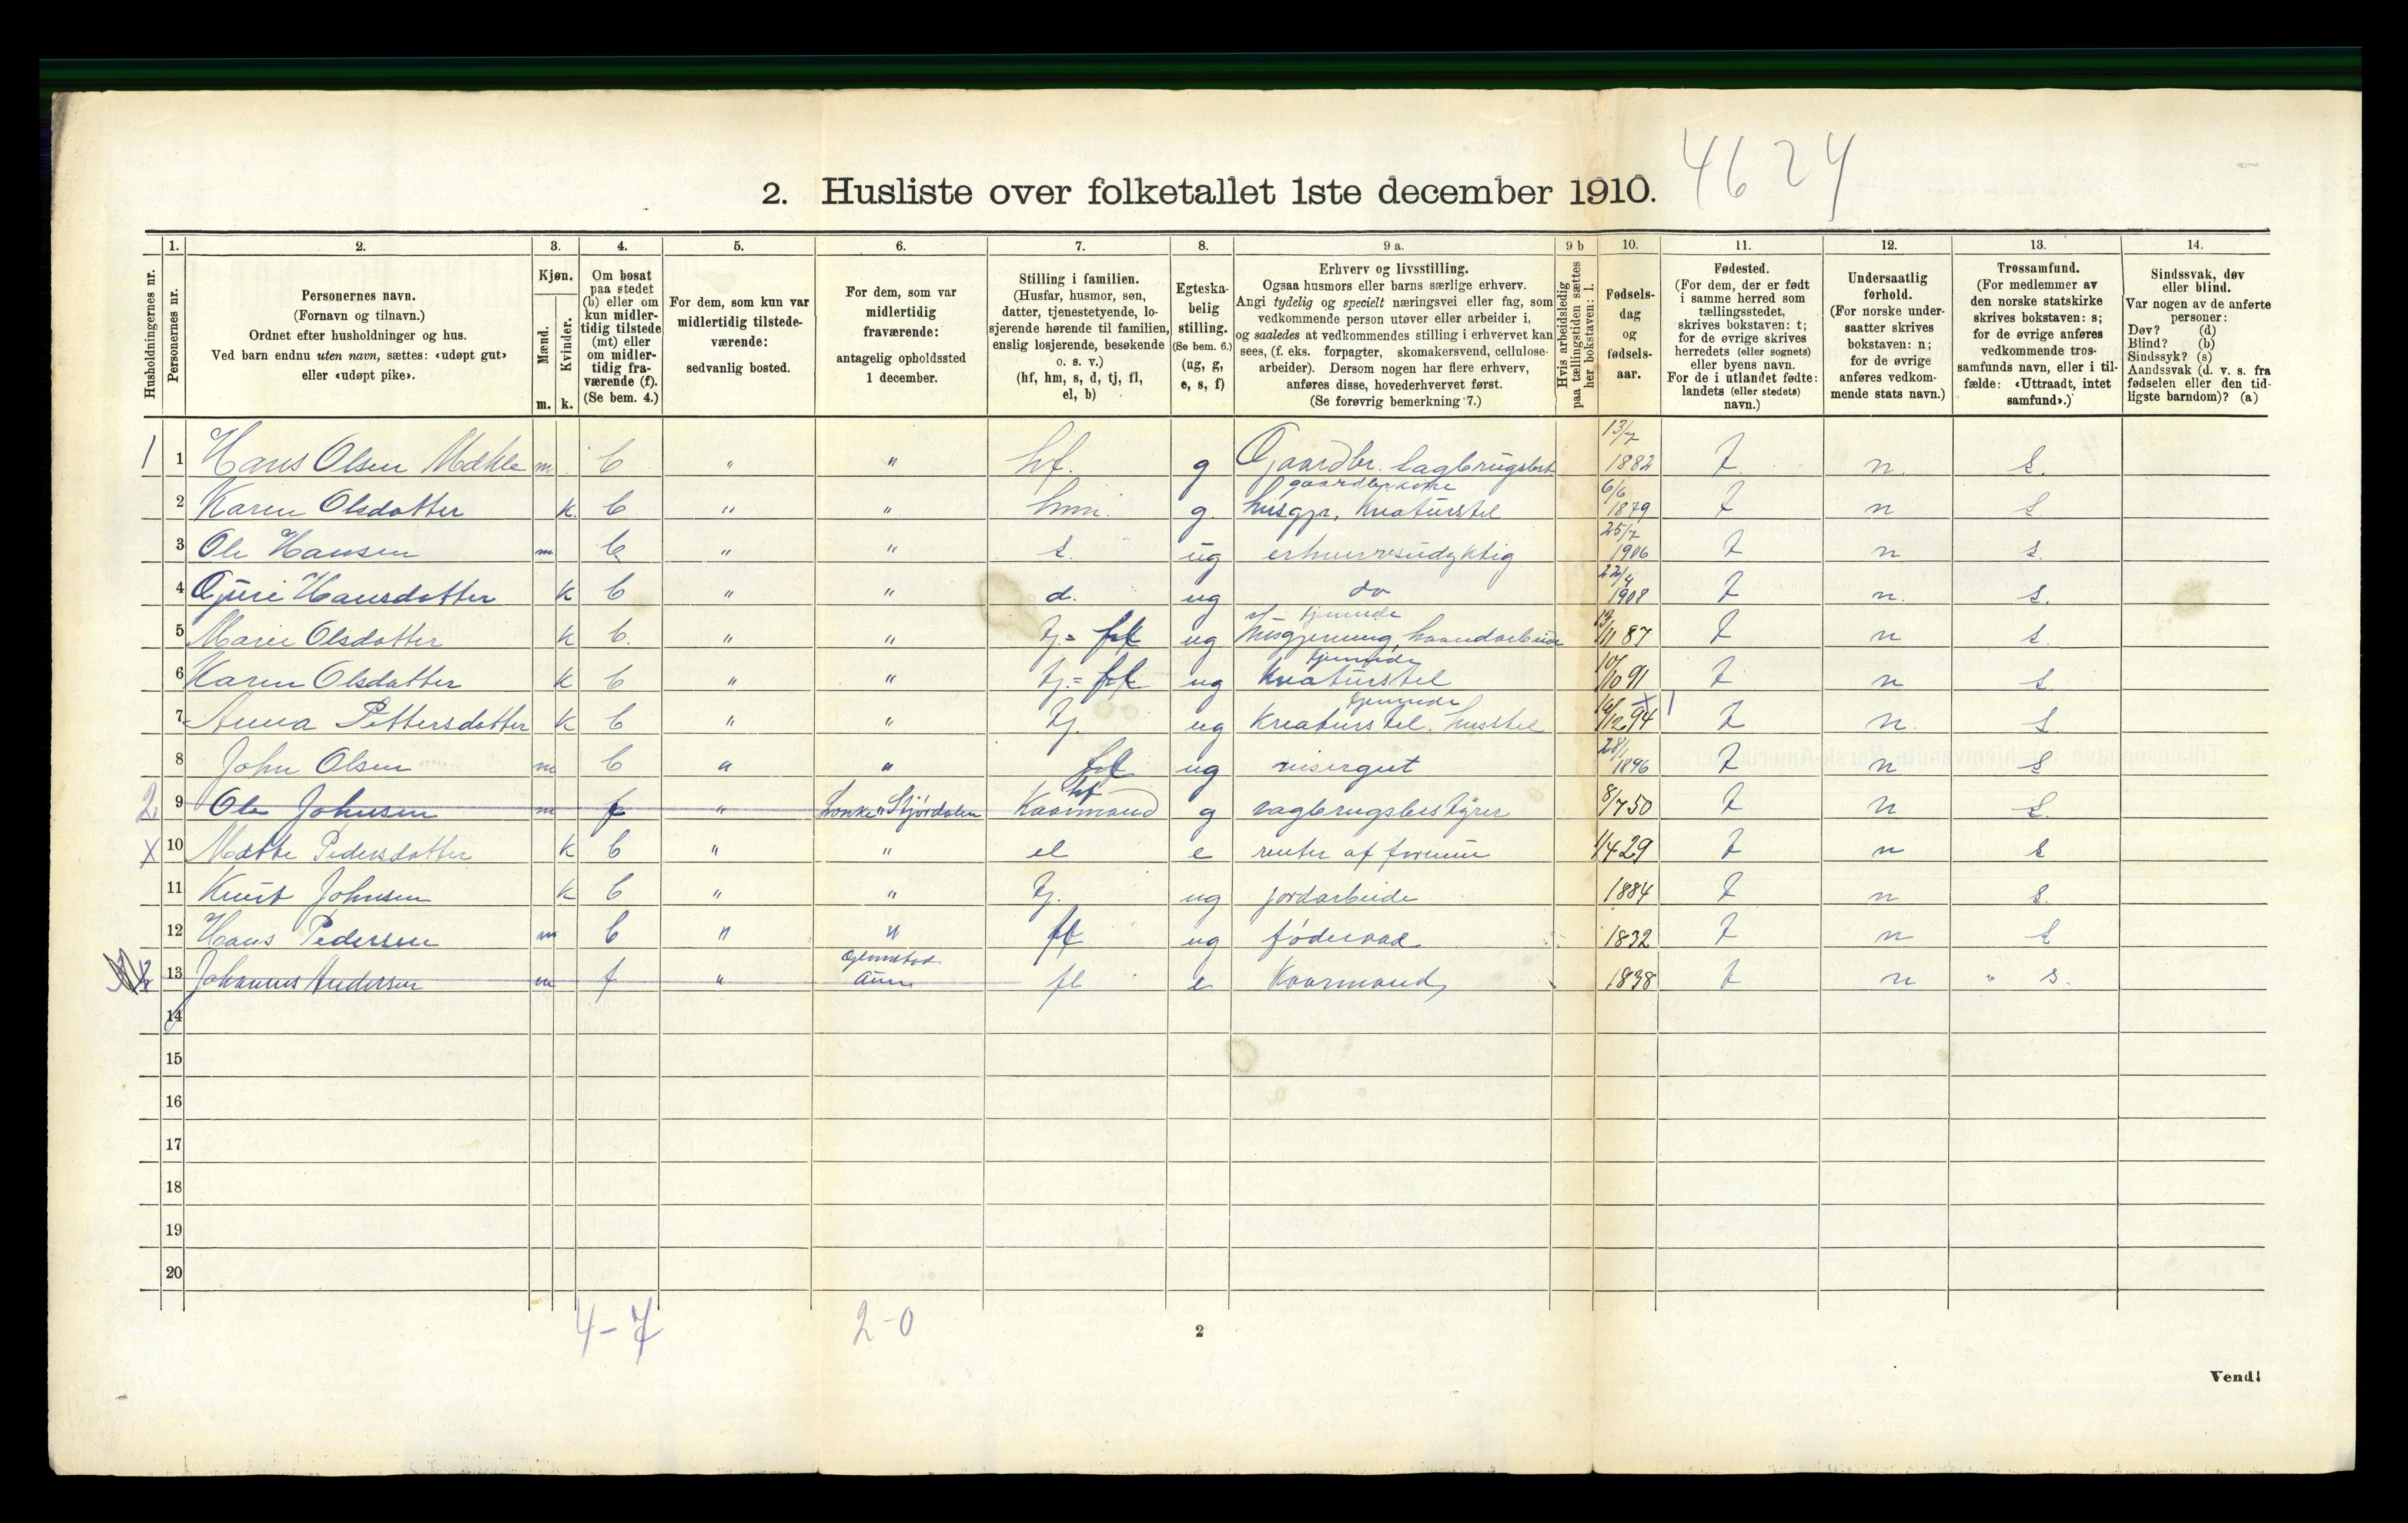 4624
2. Husliste over folketallet 1ste december 1910.
Husholdningernes nr.
1.
Personernes nr.
2.
Personernes navn.
(Fornavn og tilnavn.)
Ordnet efter husholdninger og hus.
Ved barn endnu uten navn, sættes: «udøpt gut»
eller «udøpt pike».
3.
Kjøn.
Mænd.
Kvinder.
m.
k.
4.
Om bosat
paa stedet
(b) eller om
kun midler-
tidig tilstede
(mt) eller
om midler-
tidig fra-
værende (f).
(Se bem. 4.)
5.
For dem, som kun var
midlertidig tilstede-
værende:
sedvanlig bosted.
6.
For dem, som var
midlertidig
fraværende:
antagelig opholdssted
1 december.
7.
Stilling i familien.
(Husfar, husmor, søn,
datter, tjenestetyende, lo-
sjerende hørende til familien,
enslig losjerende, besøkende
o. s. v.)
(hf, hm, s, d, tj, fl,
el, b)
8.
Egteska-
belig
stilling.
(Se bem. 6.)
(ug, g,
e, s, f)
9 a.
Erhverv og livsstilling.
Ogsaa husmors eller barns særlige erhverv.
Angi tydelig og specielt næringsvei eller fag, som
vedkommende person utøver eller arbeider i,
og saaledes at vedkommendes stilling i erhvervet kan
sees, (f. eks. forpagter, skomakersvend, cellulose-
arbeider). Dersom nogen har flere erhverv,
anføres disse, hovederhvervet først.
(Se forøvrig bemerkning 7.)
9 b
Hvis arbeidsledig
paa tællingstiden sættes
her bokstaven: l.
10.
Fødsels-
dag
og
fødsels-
aar.
11.
Fødested.
(For dem, der er født
i samme herred som
tællingsstedet,
skrives bokstaven: t;
for de øvrige skrives
herredets (eller sognets)
eller byens navn.
For de i utlandet fødte:
landets (eller stedets)
navn.)
12.
Undersaatlig
forhold.
(For norske under-
saatter skrives
bokstaven: n;
for de øvrige
anføres vedkom-
mende stats navn.)
13.
Trossamfund.
(For medlemmer av
den norske statskirke
skrives bokstaven: s;
for de øvrige anføres
vedkommende tros-
samfunds navn, eller i til-
fælde: «Uttraadt, intet
samfund».)
14.
Sindssvak, døv
eller blind.
Var nogen av de anførte
personer:
Døv? (d)
Blind? (b)
Sindssyk? (s)
Aandssvak (d. v. s. fra
fødselen eller den tid-
ligste barndom)? (a)
1 1 Hans Olsen m b " " hf. g Gaardbr. sagbrugsbest 13/7 1882 t n. s.
2 Karen Olsdatter k. b " " hm. g. gaardbrkone husgjr, kreaturstel 6/6 1879 t n s
3 Ole Hansen m b " " s. ug erhvervsudyktig 25/7 1906 t n s.
4 Gjuri Hansdatter k b " " d. ug do 22/4 1908 t n. s.
5 Marie Olsdatter k b. " " tj = fl ug tjenende husgjerning, haandarbeide /11 87 t n s.
6 Karen Olsdatter k b " " tj. = fl ug tjenende kreaturstel 10/10 91 t n s
7 Anna Pettersdatter k b " " tj. ug tjenende kreaturstel. husstel 16/12 94 x 1 t n. s
8 John Olsen m b " " fl ug visergut 28/1 1896 t n s
2 9 Ole Johnsen m f " Lonke " Stjørdalen hf Kaarmand g sagbrugsbestyrer 8/7 50 t n s.
x 10 Mette Pedersdatter k b " " el e renter af formue 1/4 29 t n s
11 Knut Johnsen k b " " tj. ug jordarbeide 1884 t n s.
12 Hans Pedersen m b " " fl ug føderaad 1832 t n s
13 Johannes Andersen m f " Aune fl e Kaarmand 1838 t n " s.
14
15
16
17
18
19
20
4-7
2-0
2
Vend!